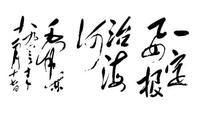 一定
要根
治海
河
毛泽东
一九六三年
十一月十七日